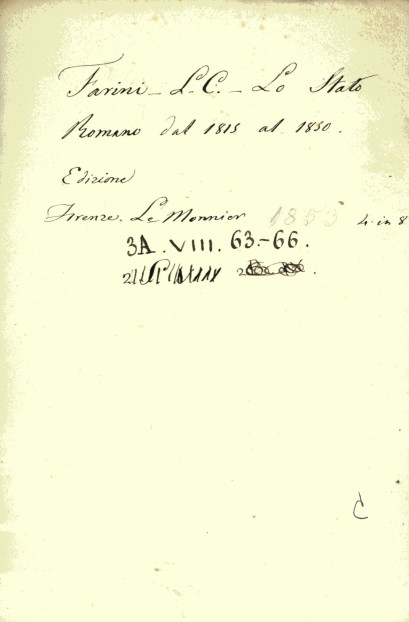 Farini - L. C. - Lo Stato
Romano dal 1815 al 1850.
Edizione
Firenze. Le Monnier 1853 4. in 8
3A. VIII. 63.-66.
C